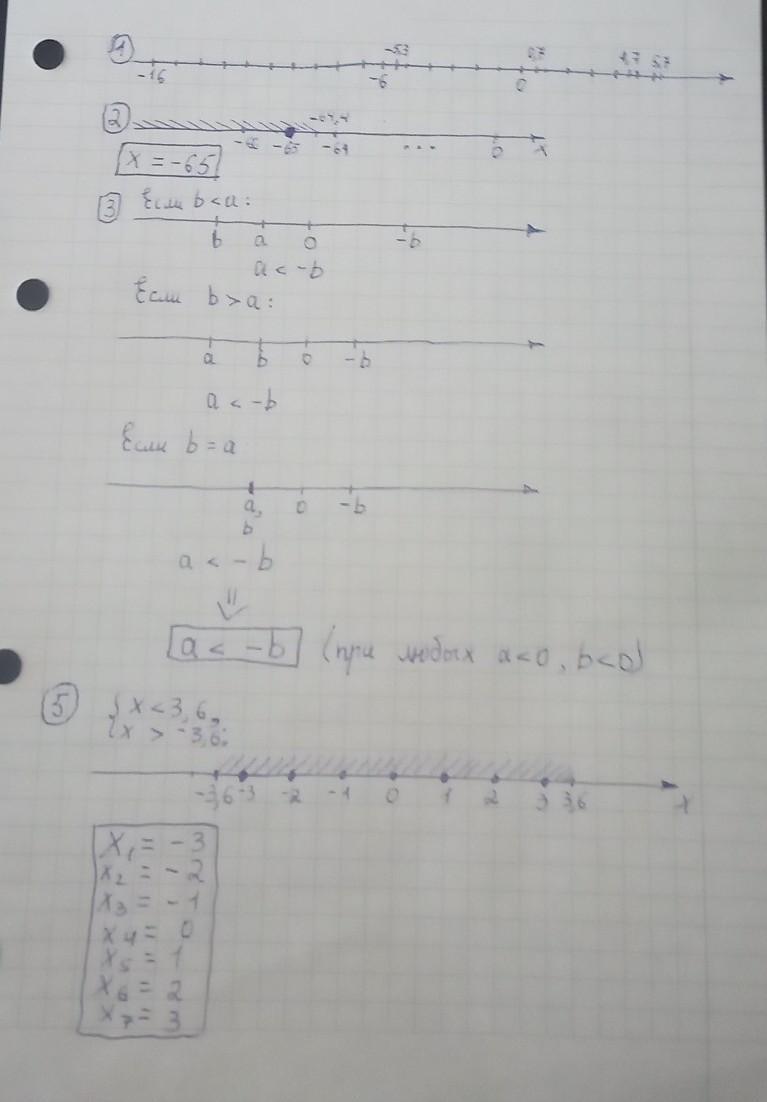 1
-5,3 0,7 4,7 5,7
-16 -6 0
2
-64,4
-66 -65 -64 ... 0 x
x = -65
3 Если b < a:
b a 0 -b
a < -b
Если b > a:
a b 0 -b
a < -b
Если b = a
a, 0 -b
b
a < - b
⇓
a < -b (при любых a<0, b<0)
5 { x < 3,6,
x > -3,6;
-3,6 -3 -2 -1 0 1 2 3 3,6 x
x₁ = -3
x₂ = -2
x₃ = -1
x₄ = 0
x₅ = 1
x₆ = 2
x₇ = 3